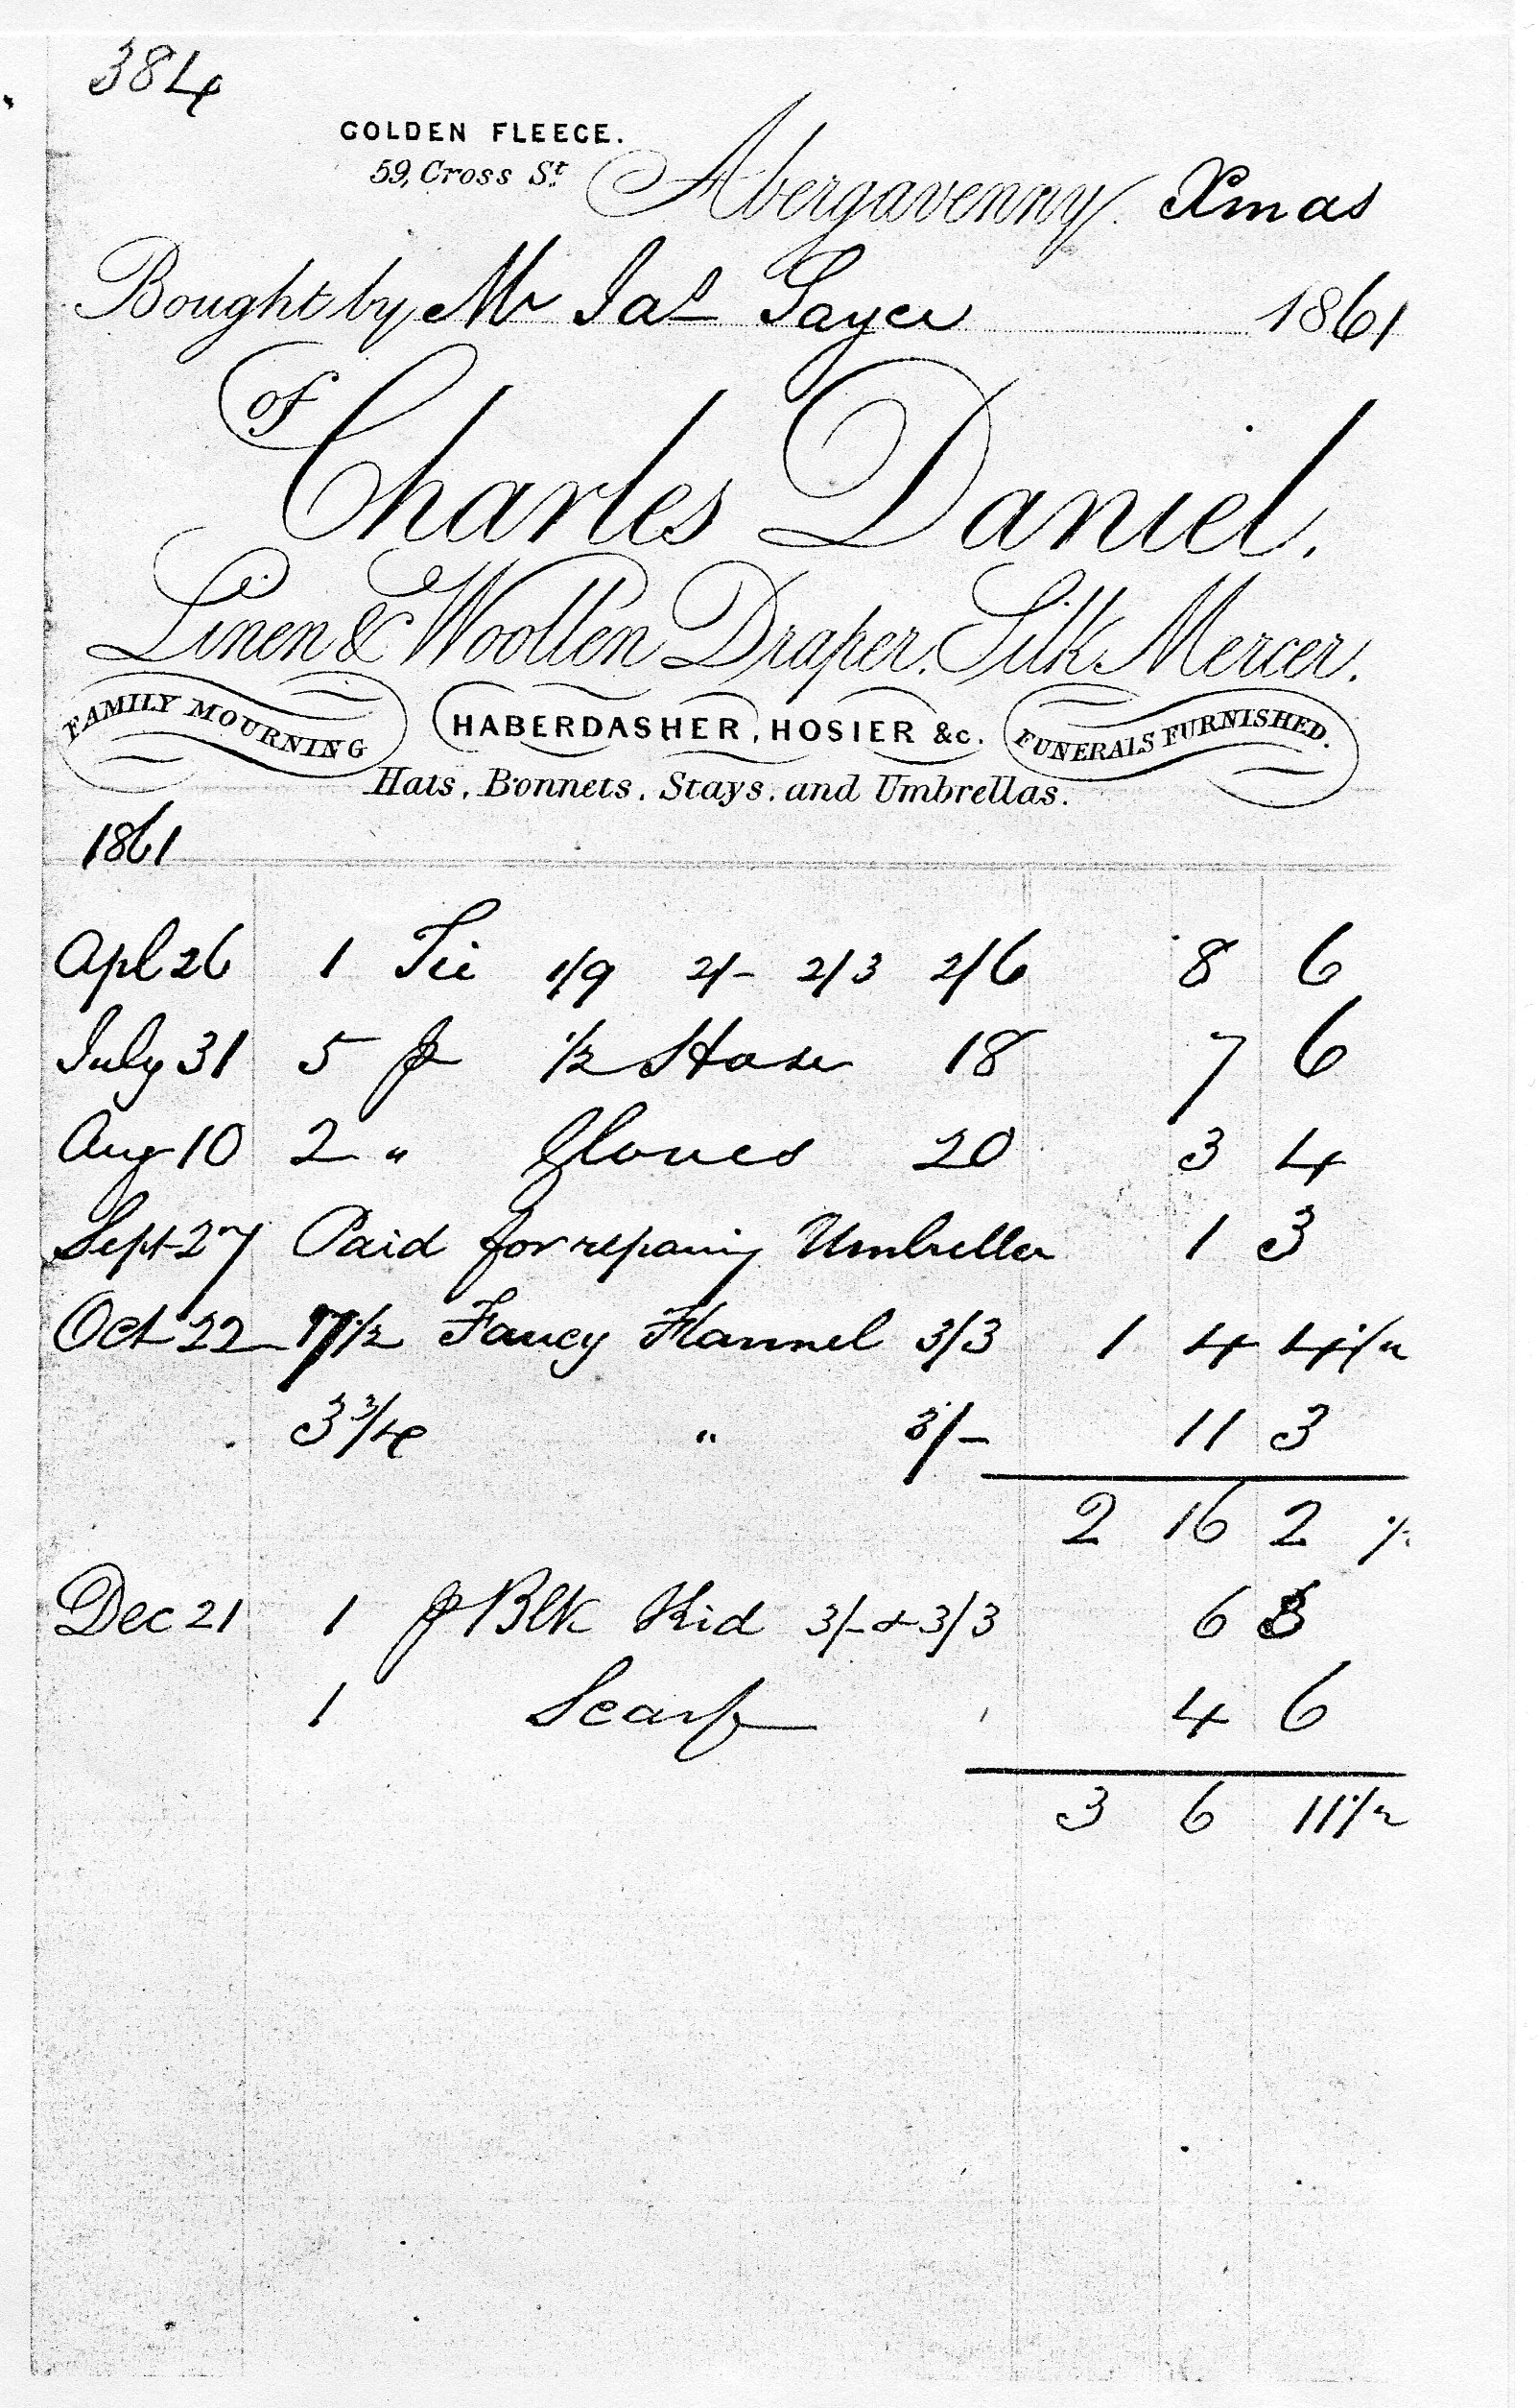 384
GOLDEN FLEECE.
59, Cross St. Abergavenny. Xmas
Bought by Mr Jas Sayce 1861
of
Charles Daniel.
Linen & Woollen Draper. Silk Mercer.
FAMILY MOURNING HABERDASHER, HOSIER &c. FUNERALS FURNISHED.
Hats, Bonnets, Stays, and Umbrellas.
1861
Apl 26 1 Tie 1/9 2/- 2/3 2/6 8 6
July 31 5 p 1/2 Hose 18 7 6
Aug 10 2 " Gloves 20 3 4
Sept 27 Paid for repairing Umbrella 1 3
Oct 22 7 1/2 Fancy Flannel 3/3 1 4 4 1/2
3 3/4 " 3/- 11 3
2 16 2 1/2
Dec 21 1 p Blk Kid 3/- & 3/3 6 3
1 Scarf 4 6
3 6 11 1/2